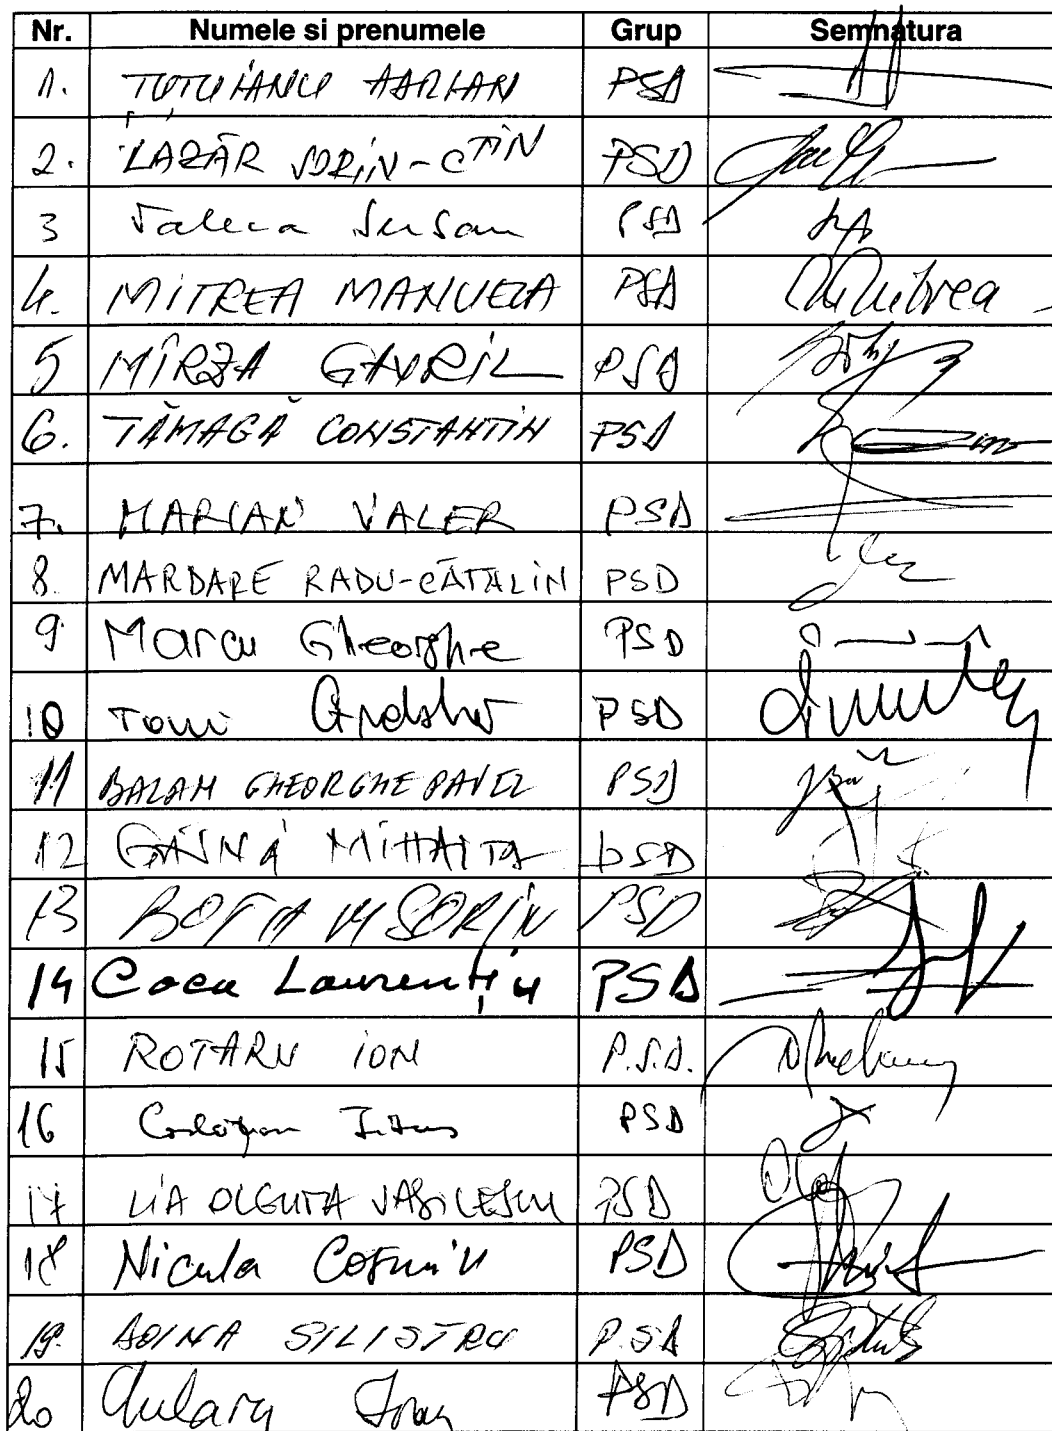 Nr. Numele si prenumele Grup Semnatura
1. TUTUIANU ADRIAN PSD
2. LAZĂR SORIN-CTIN PSD
3 Valeca Serban PSD
4. MITREA MANUELA PSD MMitrea
5 MÎRZA GAVRIL PSD
6. TĂMAGĂ CONSTANTIN PSD
7. MARIAN VALER PSD
8. MARDARE RADU-CĂTĂLIN PSD
9 Marcu Gheorghe PSD
10 Toni PSD
11 BALAN GHEORGHE PAVEL PSD
12 GĂINĂ MIHĂIȚĂ PSD
13 SORIN PSD
14 Coca Laurențiu PSD
15 ROTARU ION P.S.D.
16 Corlățean Titus PSD
17 LIA OLGUTA VASILESCU PSD
18 Nicula Cosmin PSD
19. DOINA SILISTRU P.SD
20 PSD